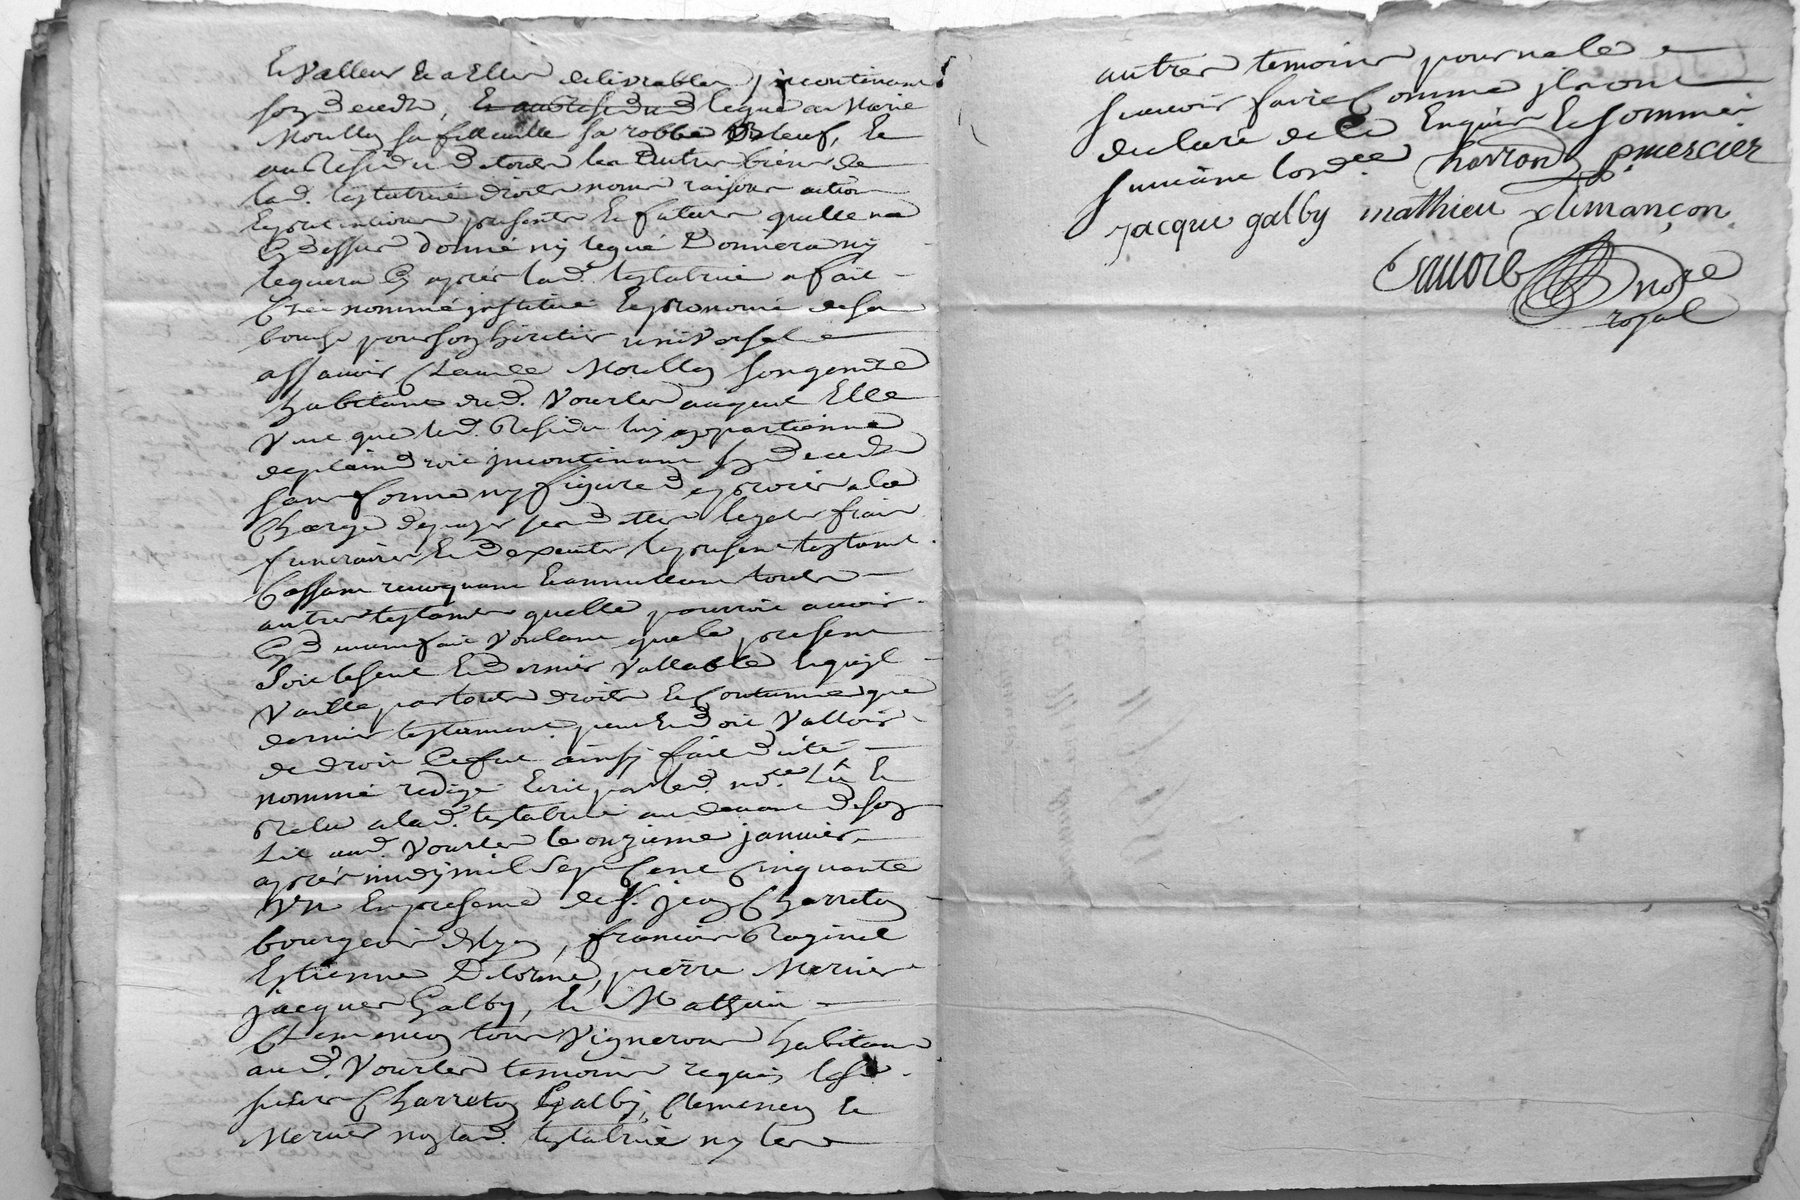 et valleur et a elles delivrables incontinant
son deceds, et au residu d legue a Marie
Moully sa fillieulle sa robbe bleuf, et
au Residu de toutes les autres biens de
lad. testatrice droits noms raisons actions
et pretentions presents et futurs quelle na
cy dessus donné ny legué donnera ny
leguera cy après lad. testatrice a fait
créé nommé institué et prononcé de sa
bouche pour son héritier universel
assavoir Claude Moully son gendre
habitant dud. Vourles auquel Elle
veut que led. Residu luy appartienne
de plain droit incontinant son deceds
sans forme ny figure de procès a la
charge de payer ses dettes legats frais
funeraires et d'executer le present testamt.
cassant revoquant et annullant toutes
autres testaments quelle pourroit avoir
cy devant fait voulant que le present
soit le seul et dernier vallable et quil
vaille par toutes droits et coutumes que
dernier testament peut et doit valloir
de droit ce fut ainsy fait dicté
nommé redigé écrit par led. nore. Lû et
Relu a lad. testatrice au devant de son
Lit aud. Vourles le onzieme janvier
après midy mil sept cent cinquante
un En presence de sr. jean Charreton
bourgeois de Lyon, francois Raginel
Estienne Delorme, pierre Mercier
jacques Galby, et Mathieu
Clemencon tous vignerons habitans
aud. Vourles temoins requis lesd.
sieurs Charreton Galby, Clemencon et
Mercier non lad. testatrice ny les
autres temoins pour ne le
scavoir faire comme ils ont
declaré de ce Enquis et sommés
suivant lordce. p. mercier
jacque galby mathieu climançon
nore
royal